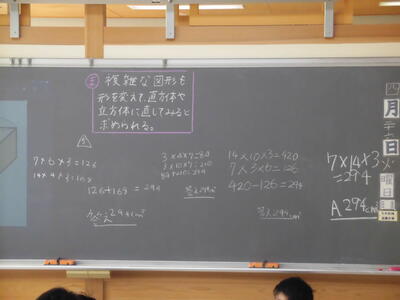 ま
複雑な図形も
形を変えて、直方体や
立方体に直してみると
求められる。
7×6×3=126
14×4×3=168
126+168=294
答え294cm³
3×4×7=84
3×10×7=210
84+210=294
答え294cm³
14×10×3=420
7×3×6=126
420-126=294
答え294cm³
7×14×3
=294
A 294cm³
月
日
曜日